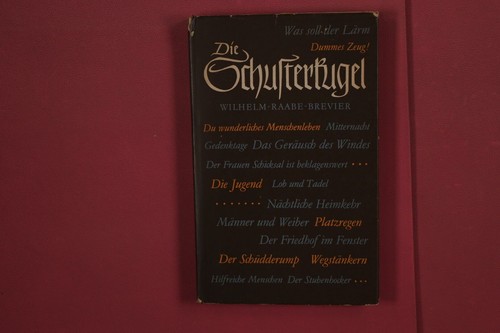 Was soll der Lärm
Dummes Zeug!
Die
Schusterkugel
WILHELM-RAABE-BREVIER
Du wunderliches Menschenleben Mitternacht
Gedenktage Das Geräusch des Windes
Der Frauen Schicksal ist beklagenswert • • •
Die Jugend Lob und Tadel
• • • • • • • Nächtliche Heimkehr
Männer und Weiber Platzregen
Der Friedhof im Fenster
Der Schüdderump Wegstänkern
Hilfreiche Menschen Der Stubenhocker • • •